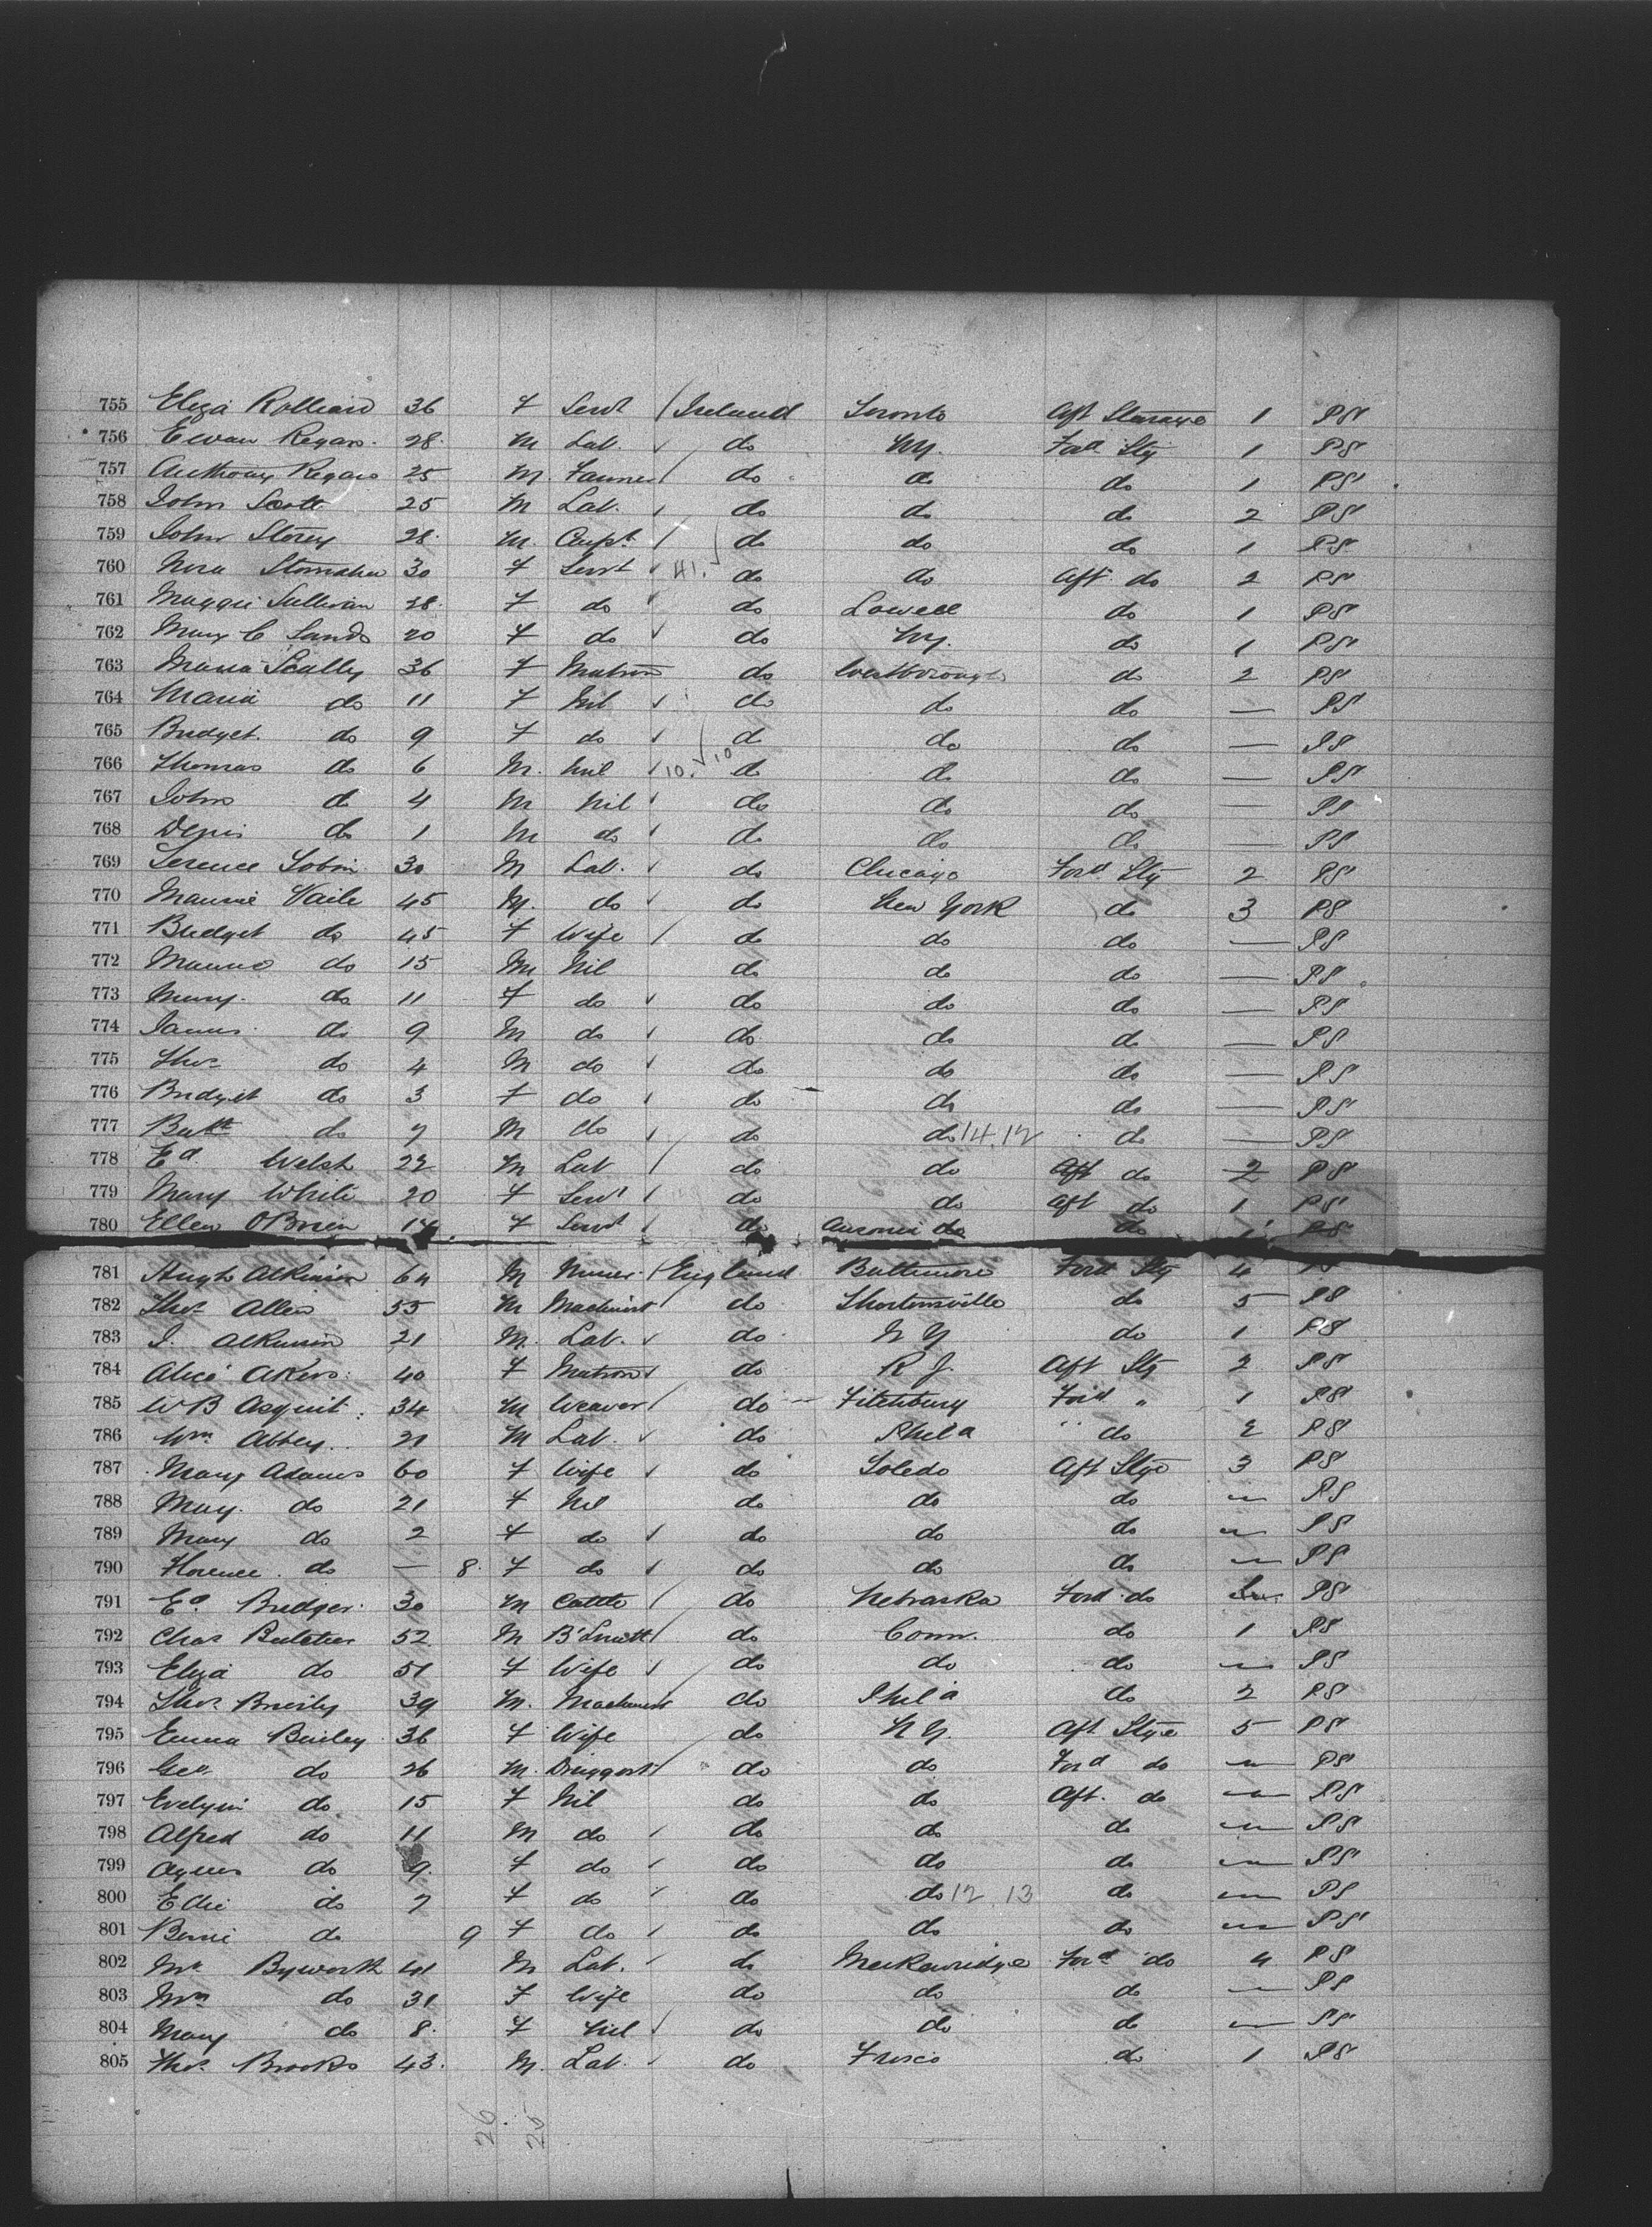 755 Eliza Rolliard 36 F Servt Ireland Toronto Aft Steerage 1 PS
756 Ewan Regan 28 M Lab. do NY. Ford Stg 1 PS
757 Anthony Regan 25 M. Farmer do do do 1 PS
758 John Scott 25 M Lab. do do do 2 PS
759 John Storey 28 M. Carpt do do do 1 PS
760 Nora 30 F Servt 41. do do Aft do 2 PS
761 Maggie Sullivan 28 F do do Lowell do 1 PS
762 Mary C Sands 20 F do do NY. do 1 PS
763 Maria Scally 36 F Matron do Westborough do 2 PS
764 Maria do 11 F Nil do do do — PS
765 Bridget do 9 F do do do do — PS
766 Thomas do 6 M. Nil 10. 10 do do do — PS
767 John do 4 M Nil do do do — PS
768 Denis do 1 M do do do do — PS
769 Terence Tobin 30 M Lab. do Chicago Ford Stg 2 PS
770 Maurice Vaile 45 M. do do New York do 3 PS
771 Bridget do 45 F Wife do do do — PS
772 do 15 M Nil do do do — PS
773 Mary do 11 F do do do do — PS
774 James do 9 M do do do do — PS
775 Thos do 4 M do do do do — PS
776 Bridget do 3 F do do do do — PS
777 Batt do 7 M do do do 14.12 do — PS
778 Ed Welsh 22 M Lab do do Aft do 2 PS
779 Mary White 20 F Servt do do Aft do 1 PS
780 Ellen O'Brien 14 F Servt do do do 1 PS
781 Hugh Atkinson 64 M Miner England Baltimore Ford Stg 4 PS
782 Thos Allen 55 M Machinist do Shortonsville do 5 PS
783 J. Atkinson 21 M. Lab. do N Y do 1 PS
784 Alice Akers 40 F Matron do R J. Aft Stg 2 PS
785 W B Asquit 34 M Weaver do Fitchburg Ford " 1 PS
786 Wm Abbey 21 M Lab. do Phila do 2 PS
787 Mary Adams 60 F Wife do Toledo Aft Stge 3 PS
788 May do 21 F Nil do do do — PS
789 Mary do 2 F do do do do — PS
790 Florence do — 8 F do do do do — PS
791 Ed Bridger 30 M Cattle do Nebraska Ford do PS
792 Chas 52 M B'Smith do Conn. do 1 PS
793 Eliza do 51 F Wife do do do — PS
794 Thos Brierly 39 M. Machinist do Phila do 2 PS
795 Emma Bailey 36 F Wife do N Y. Aft Stge 5 PS
796 Geo do 26 M. Druggist do do Ford do — PS
797 Evelyn do 15 F Nil do do Aft. do — PS
798 Alfred do 11 M do do do do — PS
799 Agnes do 9 F do do do do — PS
800 Edie do 7 F do do do 12 13 do — PS
801 do 9 F do do do do — PS
802 Mr Byworth 41 M Lab. do Ford do 4 PS
803 Mrs do 31 F Wife do do do — PS
804 Mary do 8 F Nil do do do — PS
805 Thos Brooks 43 M. Lab. do Frisco do 1 PS
26 25